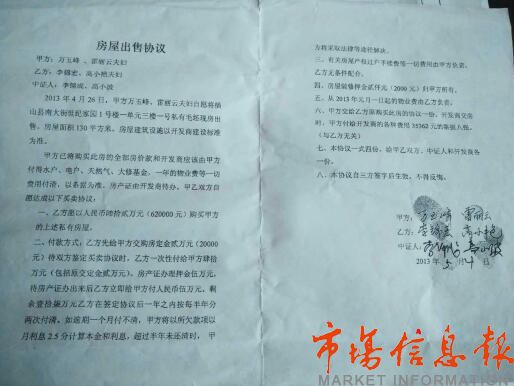 房屋出售协议
甲方：万玉峰、雷丽云夫妇
乙方：李锦宏、高小艳夫妇
中证人：李锦成、高小波
2013年4月26日，甲方万玉峰、雷丽云夫妇自愿将稷
山县南大街世纪家园1号楼一单元三楼一号私有毛坯现房出
售，房屋面积130平方米，房屋建筑设施以开发商建设标准
为准。
甲方已将购买此房的全部房价款和开发商应该由甲方
付得水户、电户、天然气、大修基金，一年的物业费等一切
费用付清，以条据为准。房产证由开发商待办。甲乙双方自
愿达成以下买卖协议：
一、乙方愿以人民币陆拾贰万元（620000元）购买甲方
的上述私有房屋。
二、付款方式：乙方先给甲方交购房定金贰万元（20000
元）待双方签定买卖协议时，乙方一次性付给甲方肆拾
万元（包括原交定金贰万元），房产证办理押金伍万元，待
房产证待办出来后乙方立即给甲方付人民币伍万元，剩
余壹拾柒万元乙方在签定协议后一年之内按每半年分
两次付清。如逾期一个月付不清，甲方将以所欠款项以
月利息2.5分计算本金和利息，超过半年未还清时，甲
方将采取法律等途径解决。
三、有关房屋产权过户手续费等一切费用由甲方负责，
乙方无条件配合。
四、房屋装修押金贰仟元（2000元）归甲方所有。
五、从2013年元月一日起的物业费由乙方负责。
六、甲方交给乙方原购买此房的协议一份，开发商交房
时，甲方付给开发商的各种费用35362元的票据八张。
（与乙方无关）
七、本协议一式四份，给甲乙双方、中证人和开发商各
一份。
八、本协议自三方签字后生效，不得反悔。
甲方：万玉峰 雷丽云
乙方：李锦宏 高小艳
中证人：李锦成 高小波
2013年 月 日
市场信息报
MARKET INFORMATION